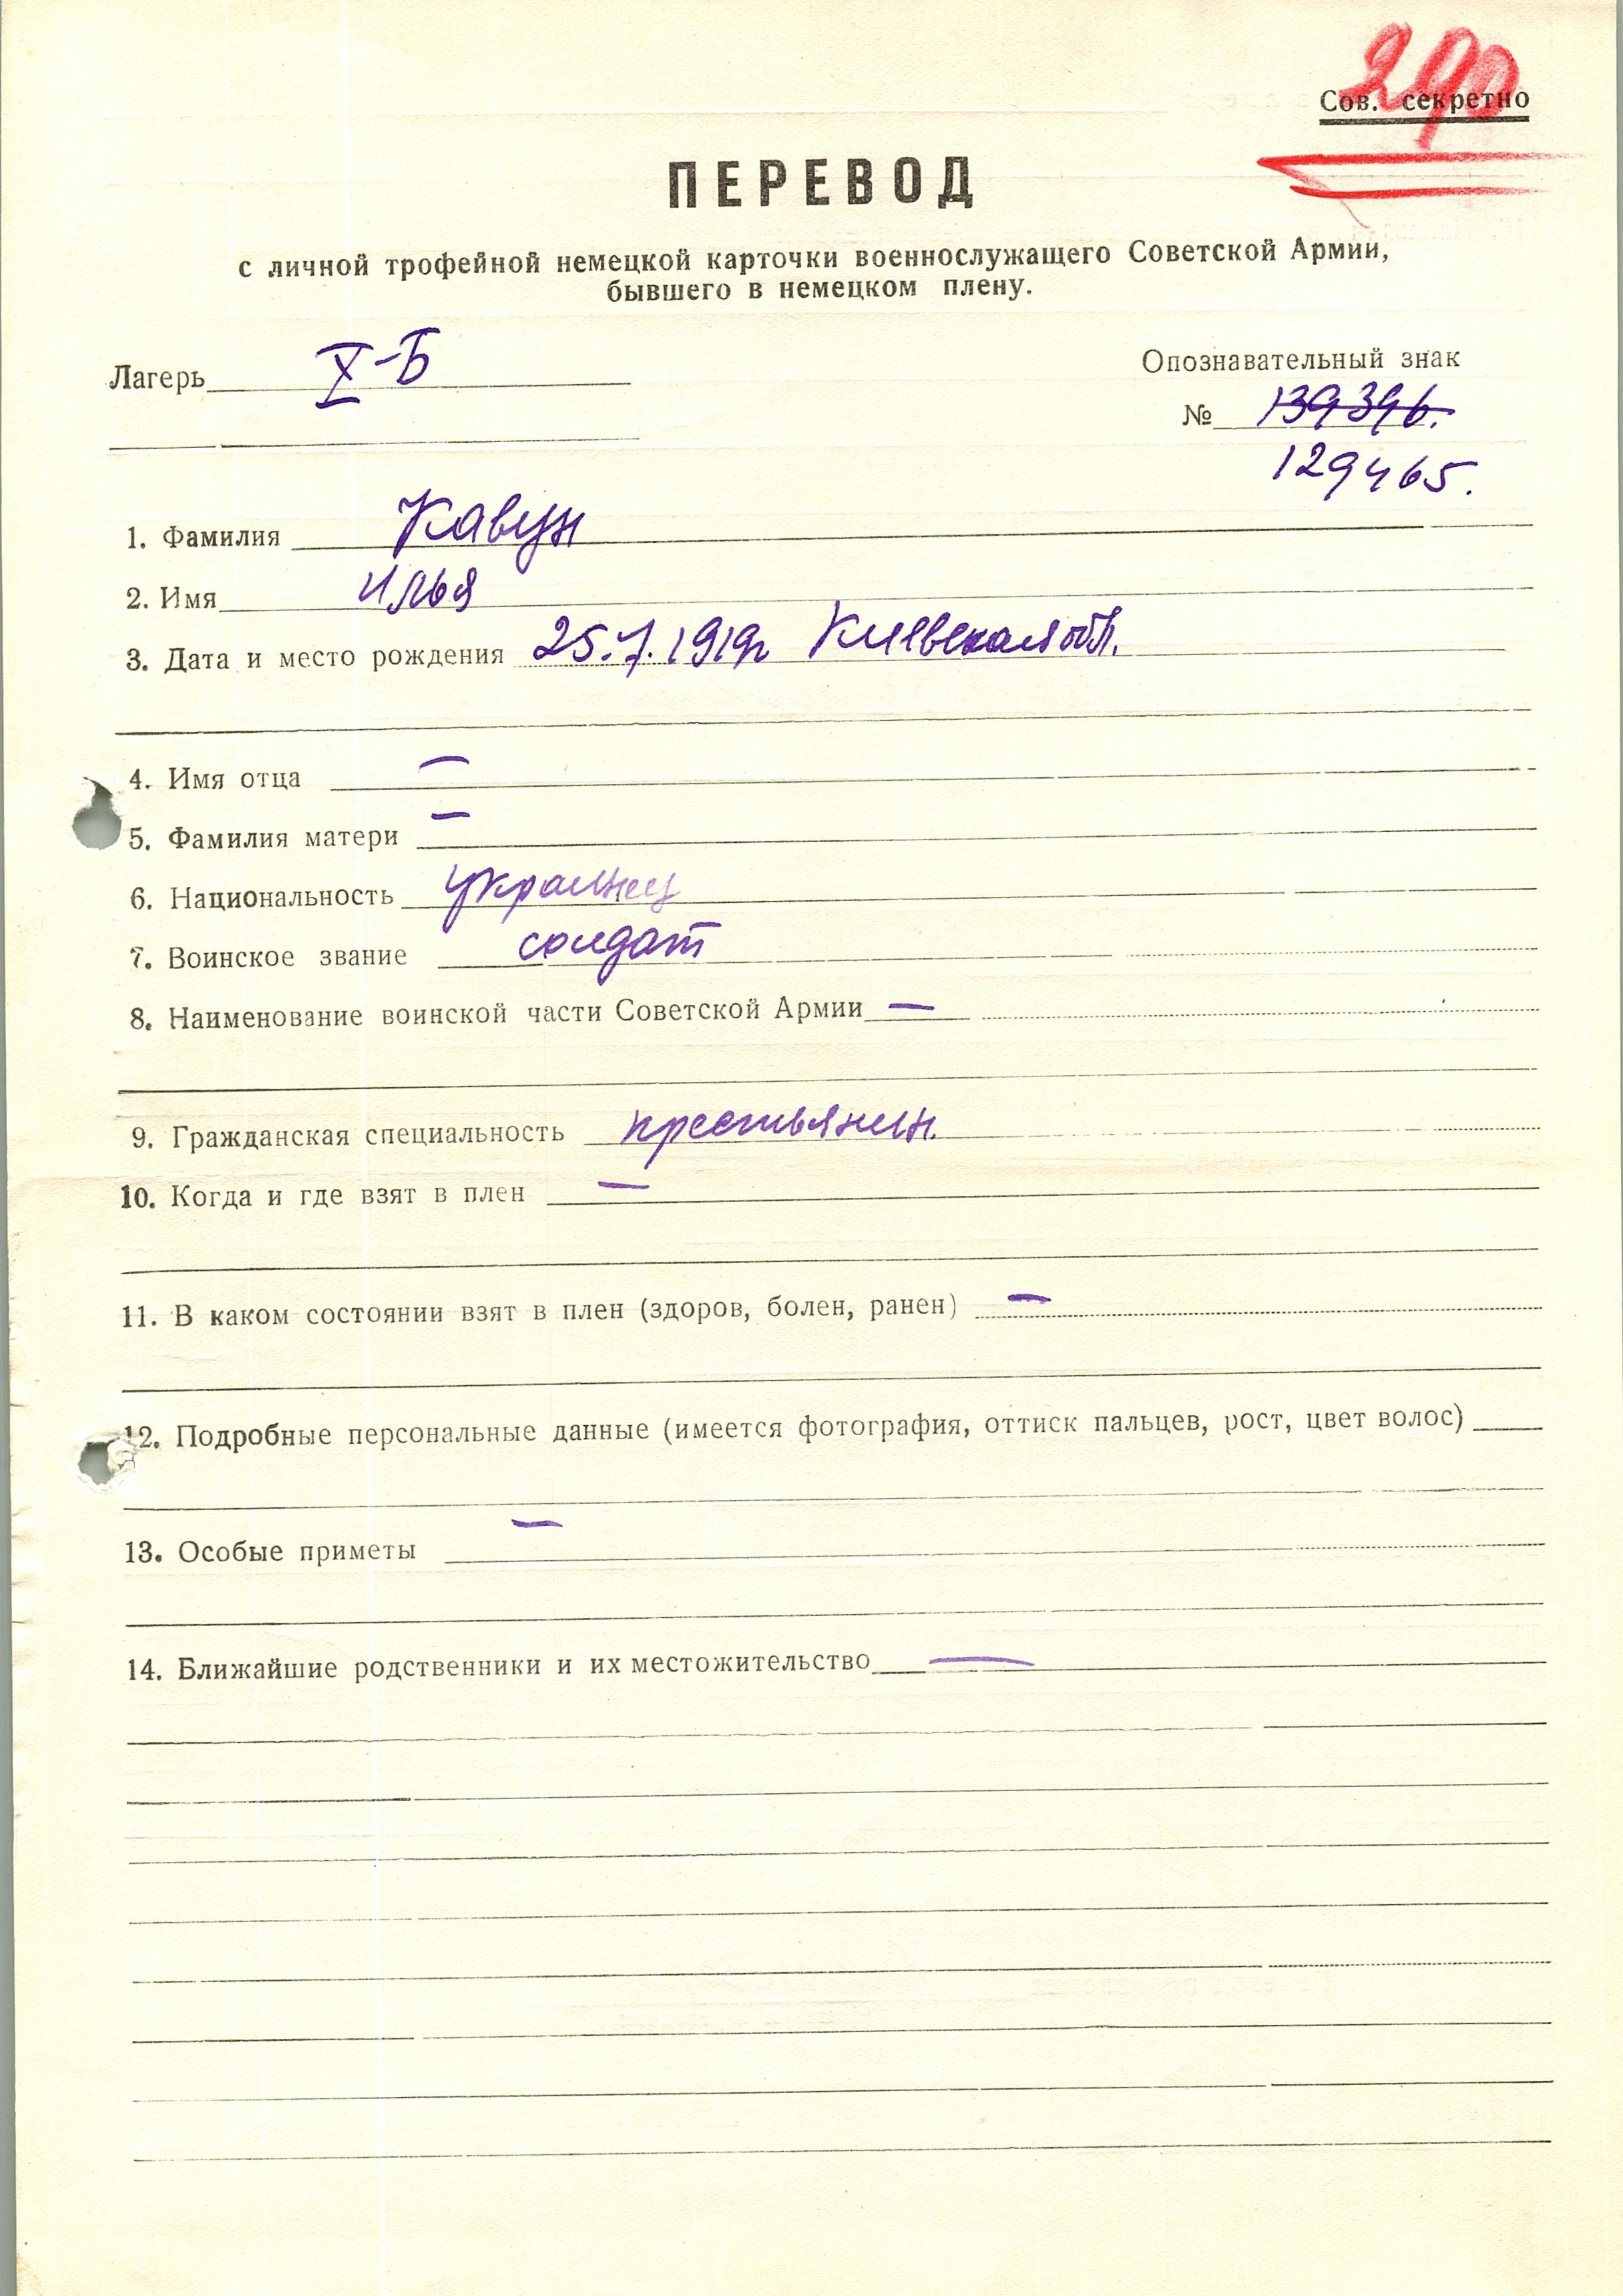 290
Сов. секретно
ПЕРЕВОД
с личной трофейной немецкой карточки военнослужащего Советской Армии,
бывшего в немецком плену.
Лагерь X-Б
Опознавательный знак
№ 139396.
129465.
1. Фамилия Кавун
2. Имя Илья
3. Дата и место рождения 25.7.1919г Киевская обл.
4. Имя отца —
5. Фамилия матери —
6. Национальность украинец
7. Воинское звание солдат
8. Наименование воинской части Советской Армии —
9. Гражданская специальность крестьянин.
10. Когда и где взят в плен —
11. В каком состоянии взят в плен (здоров, болен, ранен) —
12. Подробные персональные данные (имеется фотография, оттиск пальцев, рост, цвет волос)
13. Особые приметы —
14. Ближайшие родственники и их местожительство —